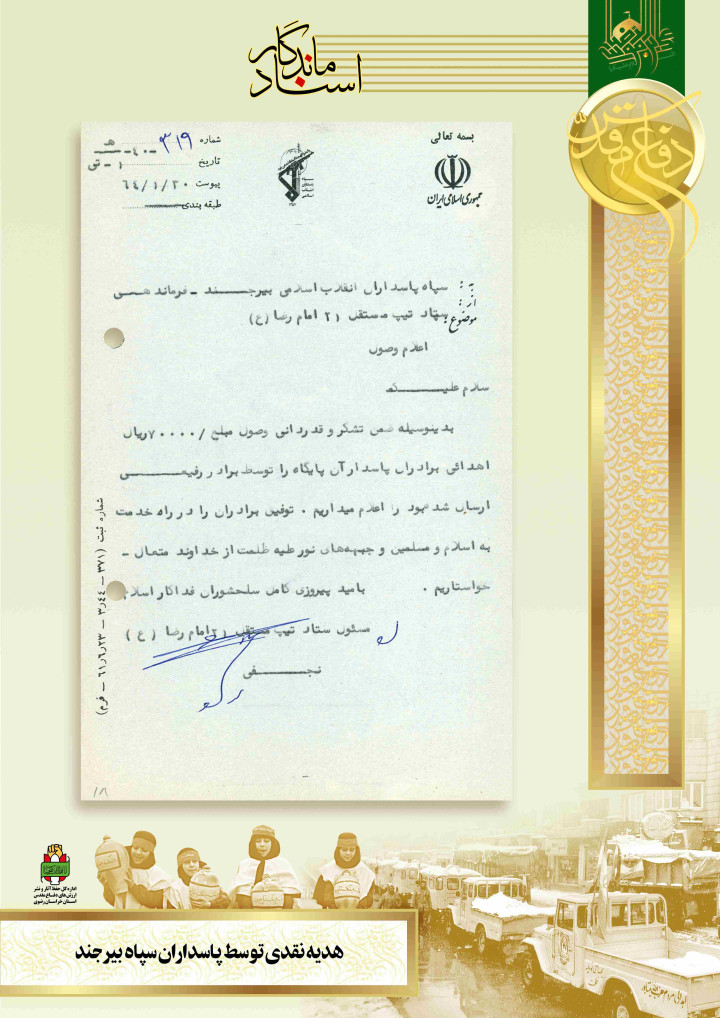 اسناد ماندگار
دفاع مقدس
بسمه تعالی
جمهوری اسلامی ایران
شماره ۳۱۹ - ۴۰ - هـ
تاریخ ۱ - تی
پیوست ۶۴/۱/۲۰
طبقه بندی
به : سپاه پاسداران انقلاب اسلامی بیرجنــــد ـ فرماندهــی
از : ستاد تیپ مستقل ۲۱ امام رضا (ع)
موضوع : اعلام وصول
سلام علیـــــــکم
بدینوسیله ضمن تشکر و قدردانی وصول مبلغ /۷۰۰۰۰ریال
اهدائی برادران پاسدار آن پایگاه را توسط برادر رفیعـــــــی
ارسال شده بود را اعلام میداریم . توفیق برادران را در راه خدمت
به اسلام و مسلمین و جبهه‌های نور علیه ظلمت از خداوند متعال ـ
خواستاریم . بامید پیروزی کامل سلحشوران فداکار اسلام
مسئول ستاد تیپ مستقل ۲۱امام رضا (ع)
نجـــــــفی
شماره ثبت (۳۷۱ — ۳٫۴۴ — ۶۱٫۶٫۲۳ — فرم)
اداره کل حفظ آثار و نشر
ارزش های دفاع مقدس
استان خراسان رضوی
هدیه نقدی توسط پاسداران سپاه بیرجند